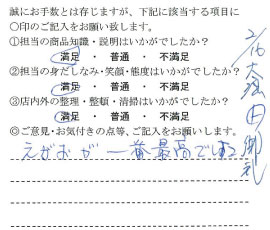 誠にお手数とは存じますが、下記に該当する項目に
○印のご記入をお願い致します。
①担当の商品知識・説明はいかがでしたか?
満足 ・ 普通 ・ 不満足
②担当の身だしなみ・笑顔・態度はいかがでしたか?
満足 ・ 普通 ・ 不満足
③店内外の整理・整頓・清掃はいかがでしたか?
満足 ・ 普通 ・ 不満足
◎ご意見・お気付きの点等、ご記入をお願いします。
えがおが一番最高です